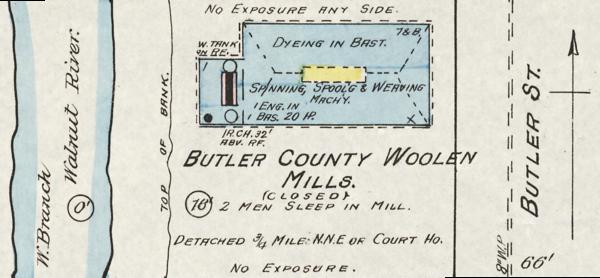 No Exposure any Side.
7&8
W. Tank
on RF.
Dyeing in Bast.
Spinning, Spool'g & Weaving
Machy.
1 Eng. in
Bas. 20 HP.
IR.CH. 32'
ABV. RF.
Butler County Woolen
Mills.
(Closed)
18' 2 Men Sleep in Mill.
Detached 3/4 Mile N.N.E of Court Ho.
No Exposure.
W. Branch Walnut River.
0'
Top of Bank.
Butler St.
8" W.P.
66'